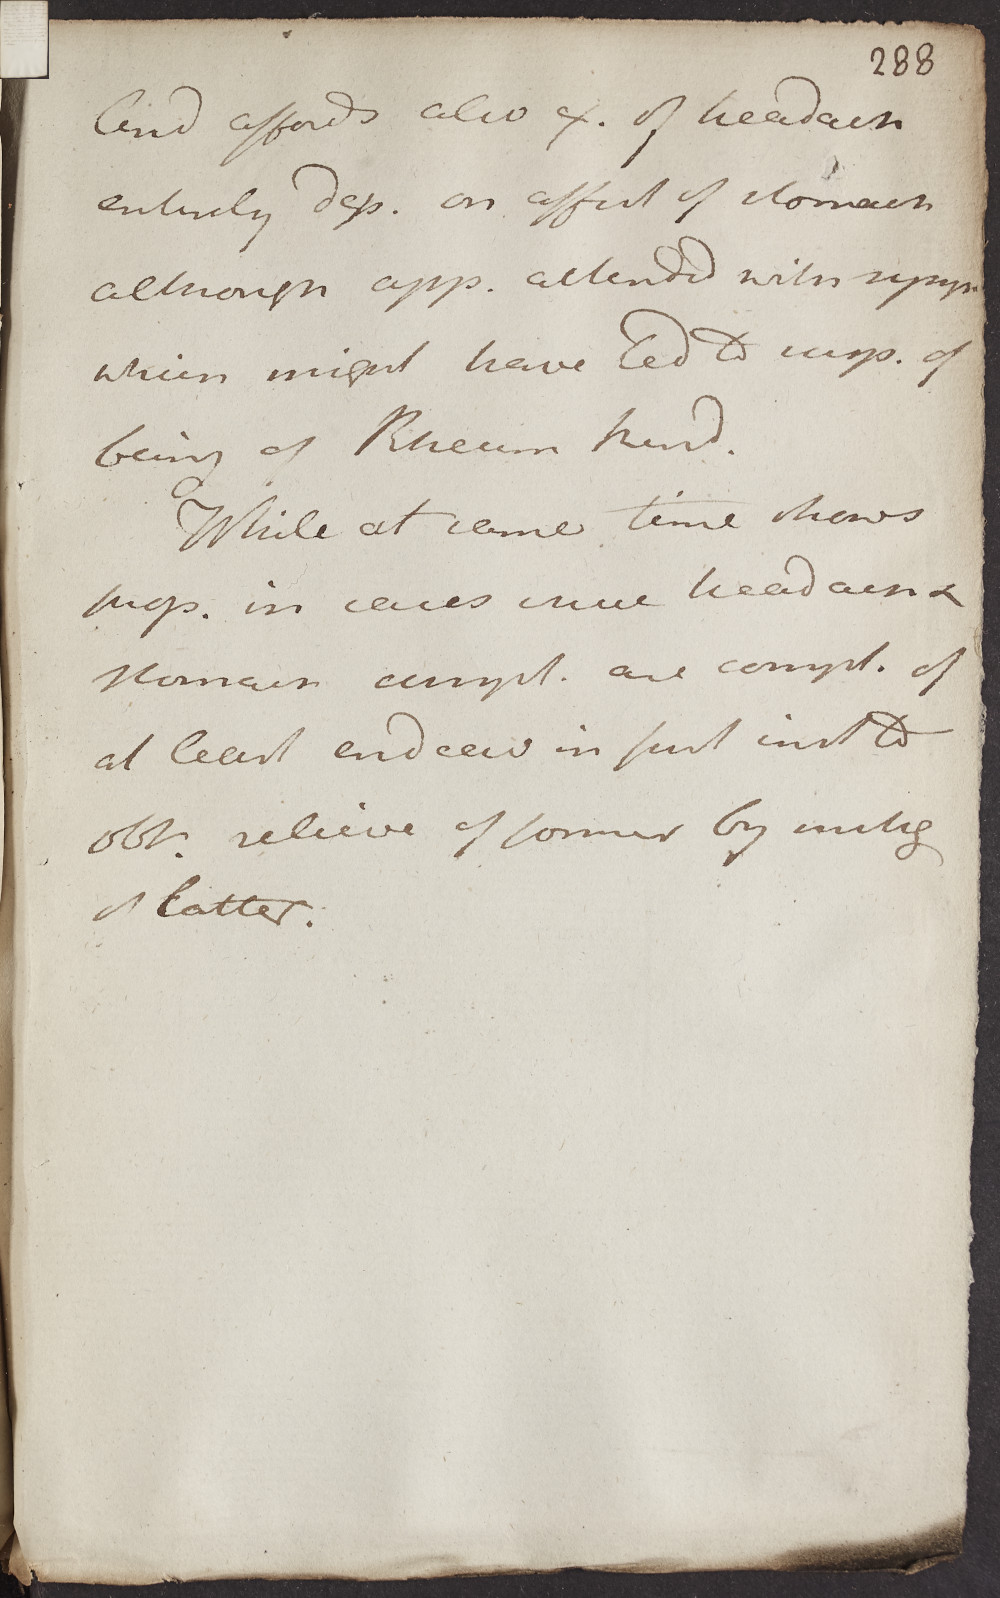 288
And affords also ex. of headach
entirely dep. on affect of stomach
although app. attended with symp
which might have led to susp. of
being of Rheum kind.
While at same time shows
prop. in cases where headach &
stomach compl. are compl. of
at least endeav in first inst to
obt. relieve of former by mitig
of latter.